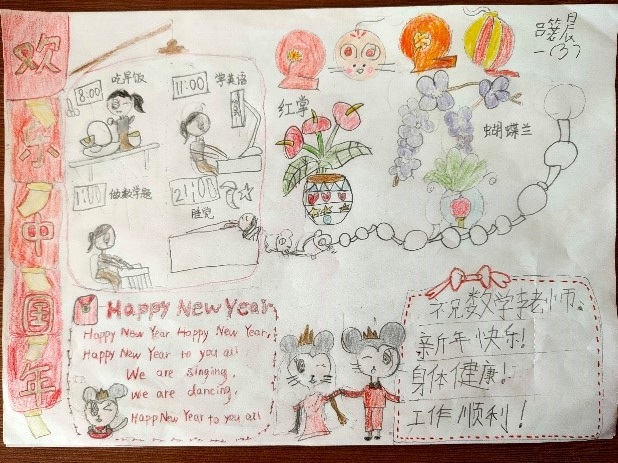 欢乐中国年
一(3)
8:00 吃早饭
11:00 学英语
1:00 做数学题
21:00 睡觉
红掌
蝴蝶兰
Happy New Year
Happy New Year Happy New Year,
Happy New Year to you all
We are singing,
we are dancing.
Happy New Year to you all
祝数学李老师、
新年快乐!
身体健康!
工作顺利!